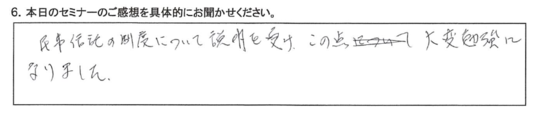 6. 本日のセミナーのご感想を具体的にお聞かせください。
民事信託の制度について説明を受け、この点 大変勉強に
なりました.